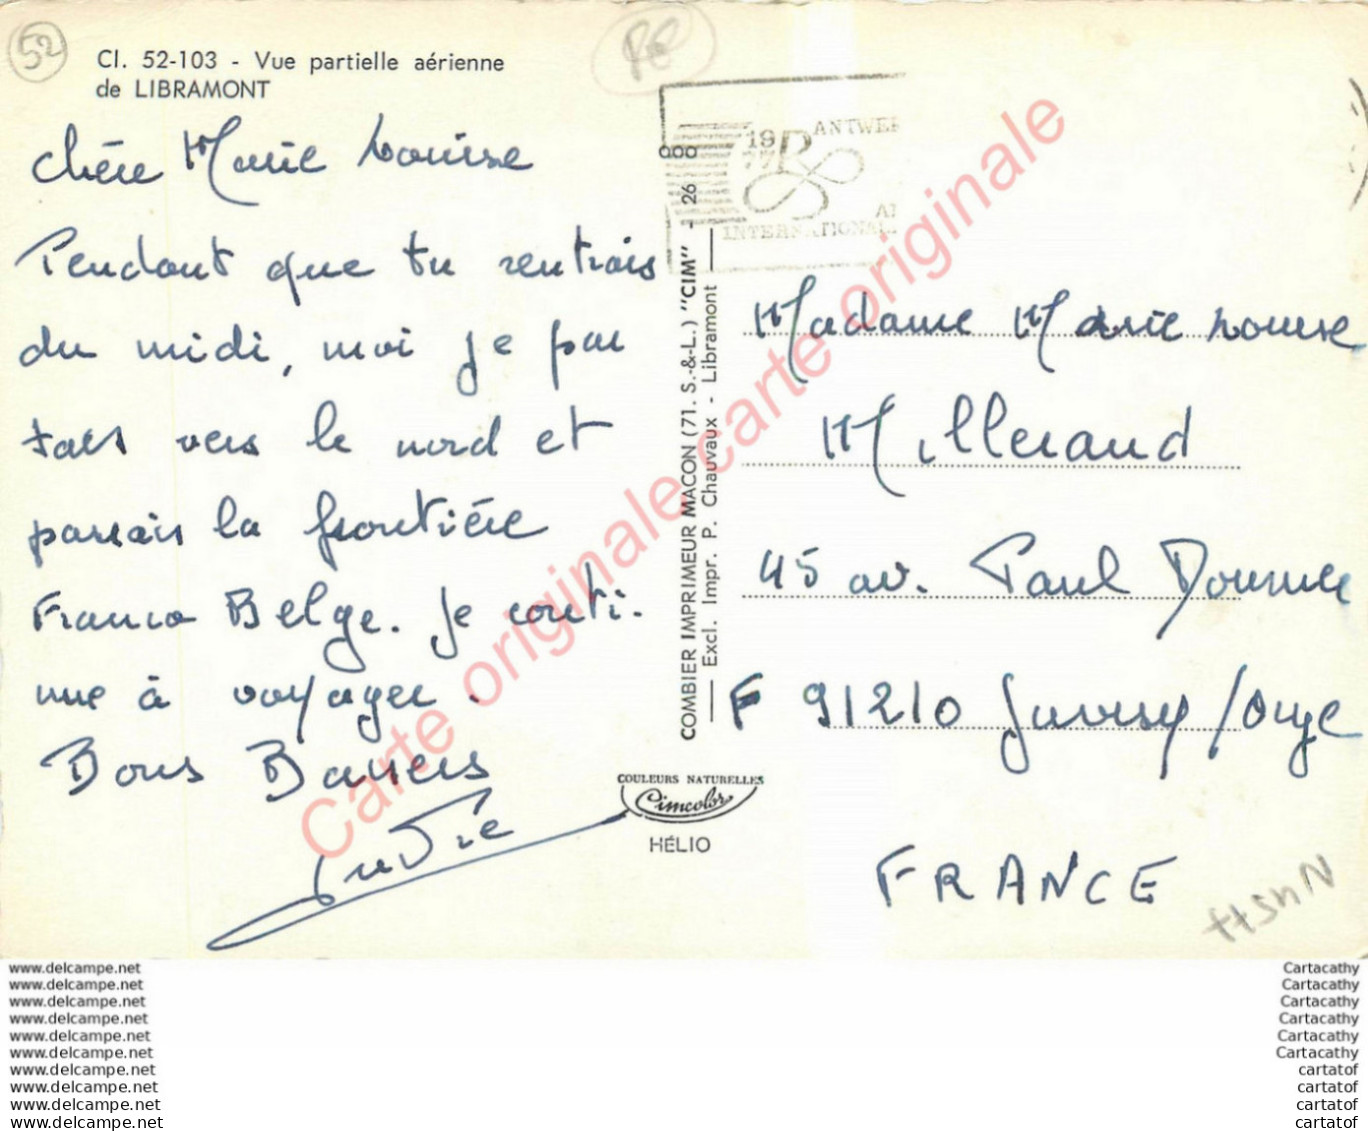 52
Cl. 52-103 - Vue partielle aérienne
de LIBRAMONT
Chère Marie Louise
Pendant que tu rentrais
du midi, moi je par
tais vers le nord et
passais la frontière
Franco Belge. Je conti-
nue à voyager.
Bons Baisers
COMBIER IMPRIMEUR MACON (71. S.-&-L.) "CIM" - 26
Excl. Impr. P. Chauvaux - Libramont
COULEURS NATURELLES
Cimcolor
HÉLIO
19 ANTWER
77
INTERNATIONAL
Madame Marie Louise
Millerand
45 av. Paul Doumer
F 91210 Juvisy/Orge
FRANCE
Carte originale carte originale
www.delcampe.net
www.delcampe.net
www.delcampe.net
www.delcampe.net
www.delcampe.net
www.delcampe.net
www.delcampe.net
www.delcampe.net
www.delcampe.net
www.delcampe.net
Cartacathy
Cartacathy
Cartacathy
Cartacathy
Cartacathy
Cartacathy
cartatof
cartatof
cartatof
cartatof